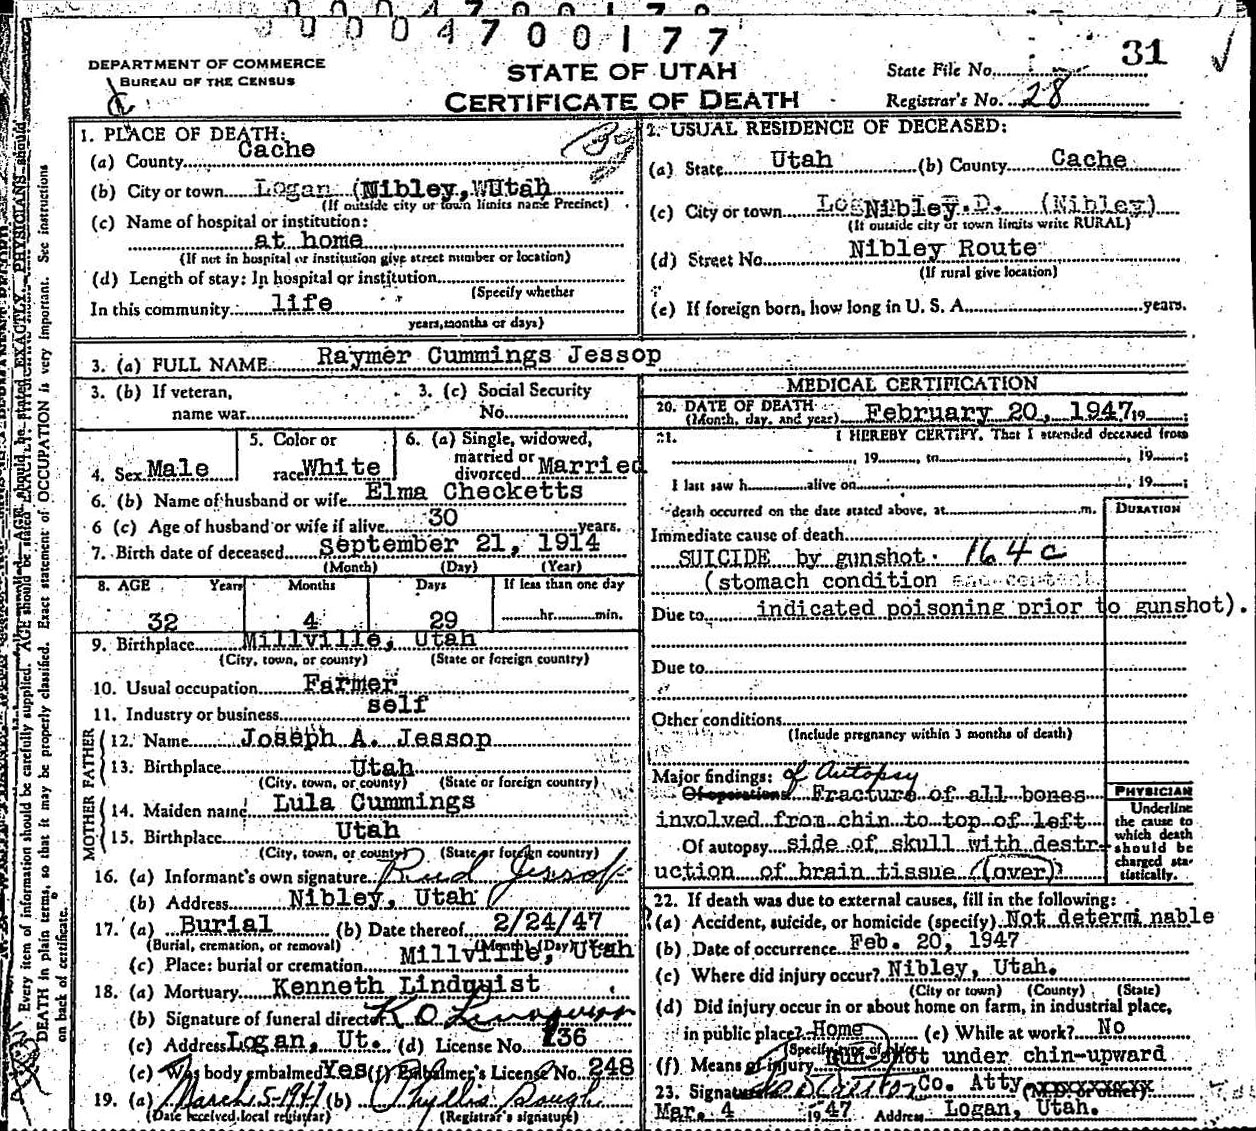 00004700177
31
DEPARTMENT OF COMMERCE
BUREAU OF THE CENSUS
STATE OF UTAH
CERTIFICATE OF DEATH
State File No.
Registrar's No. 28
1. PLACE OF DEATH:
(a) County Cache
(b) City or town Logan (Nibley, Utah
(If outside city or town limits name Precinct)
(c) Name of hospital or institution:
at home
(If not in hospital or institution give street number or location)
(d) Length of stay: In hospital or institution
(Specify whether
In this community life
years, months or days)
2. USUAL RESIDENCE OF DECEASED:
(a) State Utah (b) County Cache
(c) City or town Nibley .D. (Nibley)
(If outside city or town limits write RURAL)
(d) Street No. Nibley Route
(If rural give location)
(e) If foreign born, how long in U. S. A. years.
3. (a) FULL NAME Raymer Cummings Jessop
3. (b) If veteran,
name war
3. (c) Social Security
No.
4. Sex Male
5. Color or
race White
6. (a) Single, widowed,
married or
divorced Married
6. (b) Name of husband or wife Elma Checketts
6 (c) Age of husband or wife if alive 30 years.
7. Birth date of deceased September 21, 1914
(Month) (Day) (Year)
8. AGE Years Months Days If less than one day
32 4 29 hr. min.
9. Birthplace Millville, Utah
(City, town, or county) (State or foreign country)
10. Usual occupation Farmer
11. Industry or business self
FATHER
12. Name Joseph A. Jessop
13. Birthplace Utah
(City, town, or county) (State or foreign country)
MOTHER
14. Maiden name Lula Cummings
15. Birthplace Utah
(City, town, or county) (State or foreign country)
16. (a) Informant's own signature Jessop
(b) Address Nibley, Utah
17. (a) Burial (b) Date thereof 2/24/47
(Burial, cremation, or removal) (Month) (Day)
(c) Place: burial or cremation Millville, Utah
18. (a) Mortuary Kenneth Lindquist
(b) Signature of funeral director K O Lindquist
(c) Address Logan, Ut. (d) License No. 136
(e) Was body embalmed Yes (f) Embalmer's License No. 248
19. (a) March 5-1947 (b) Phyllis
(Date received local registrar) (Registrar's signature)
MEDICAL CERTIFICATION
20. DATE OF DEATH February 20, 1947 19
(Month, day, and year)
21. I HEREBY CERTIFY, That I attended deceased from
, 19 , to , 19 ;
I last saw h alive on , 19 ;
death occurred on the date stated above, at m.
DURATION
Immediate cause of death
SUICIDE by gunshot. 164c
(stomach condition
Due to indicated poisoning prior to gunshot).
Due to
Other conditions
(Include pregnancy within 3 months of death)
Major findings: of Autopsy
Of operations Fracture of all bones
involved from chin to top of left
Of autopsy side of skull with destr-
uction of brain tissue (over)
PHYSICIAN
Underline
the cause to
which death
should be
charged sta-
tistically.
22. If death was due to external causes, fill in the following:
(a) Accident, suicide, or homicide (specify) Not determi nable
(b) Date of occurrence Feb. 20, 1947
(c) Where did injury occur? Nibley, Utah.
(City or town) (County) (State)
(d) Did injury occur in or about home on farm, in industrial place,
in public place? Home (e) While at work? No
(f) Means of injury Gun-shot under chin-upward
23. Signature Co. Atty.
Mar. 4 1947 Address Logan, Utah.
Every item of information should be carefully supplied. AGE should be stated EXACTLY. PHYSICIANS should
DEATH in plain terms, so that it may be properly classified. Exact statement of OCCUPATION is very important. See instructions
on back of certificate.